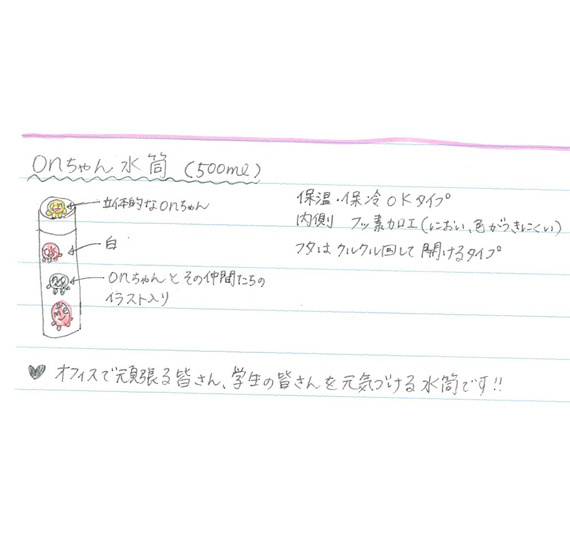 onちゃん水筒 (500ml)
立体的なonちゃん
白
onちゃんとその仲間たちの
イラスト入り
保温・保冷OKタイプ
内側 フッ素加工(におい、色がつきにくい)
フタはクルクル回して開けるタイプ
♥ オフィスで頑張る皆さん、学生の皆さんを元気づける水筒です!!